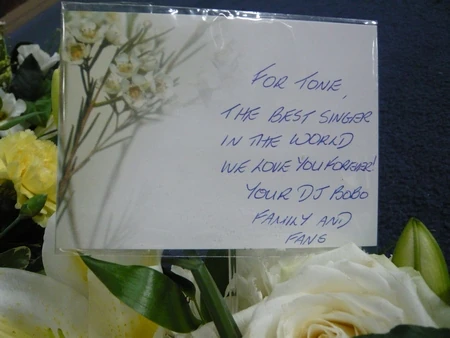 FOR TONE,
THE BEST SINGER
IN THE WORLD
WE LOVE YOU FOREVER!
YOUR DJ BOBO
FAMILY AND
FANS